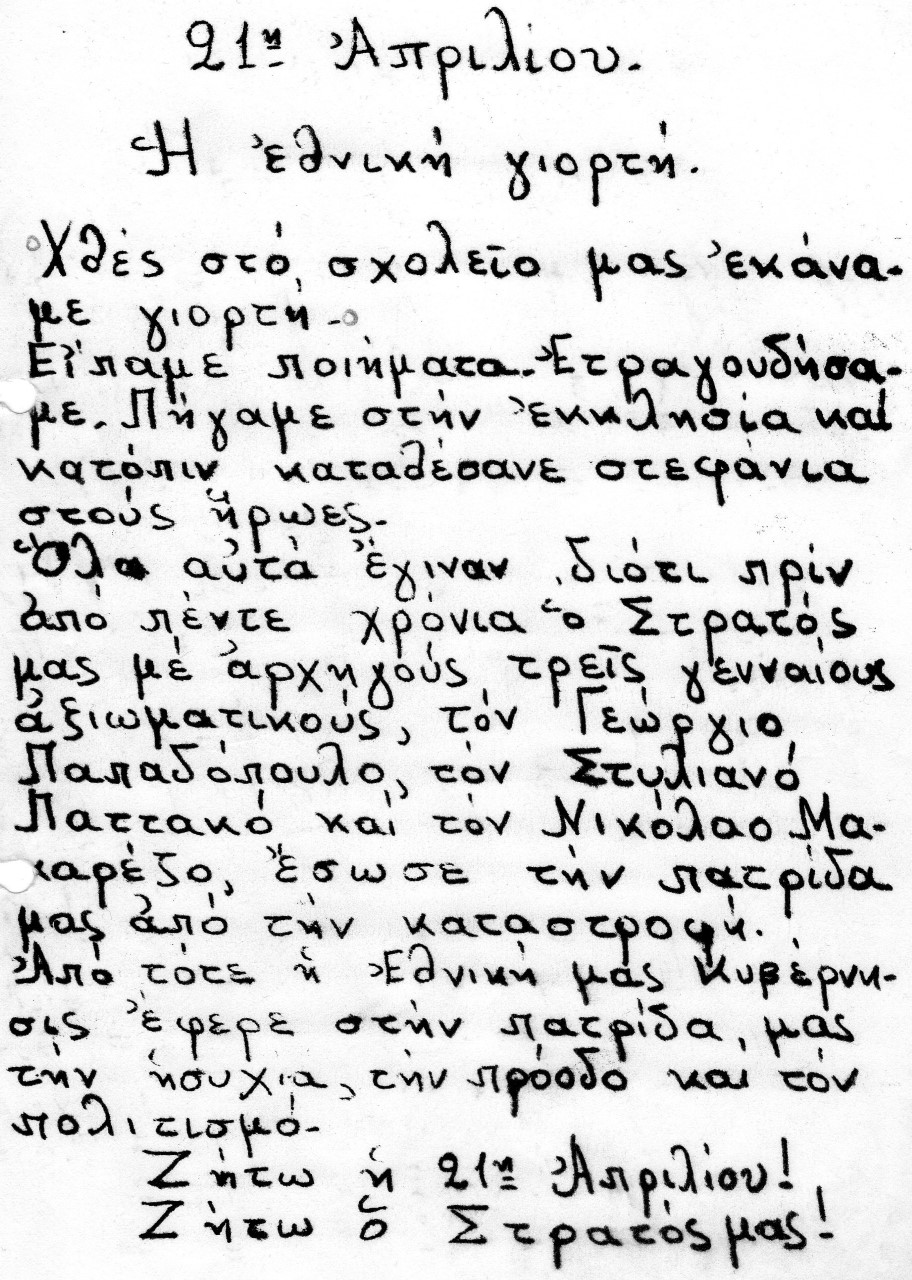 21η Ἀπριλίου.
Ἡ ἐθνική γιορτή.
Χθές στό σχολεῖο μας ἐκάνα-
με γιορτή.
Εἴπαμε ποιήματα. Ἐτραγουδήσα-
με. Πήγαμε στήν ἐκκλησία καί
κατόπιν καταθέσανε στεφάνια
στούς ἥρωες.
Ὅλα αὐτά ἔγιναν διότι πρίν
ἀπό πέντε χρόνια ὁ Στρατός
μας μέ ἀρχηγούς τρεῖς γενναίους
ἀξιωματικούς, τόν Γεώργιο
Παπαδόπουλο, τόν Στυλιανό
Παττακό καί τόν Νικόλαο Μα-
καρέζο, ἔσωσε τήν πατρίδα
μας ἀπό τήν καταστροφή.
Ἀπό τότε ἡ Ἐθνική μας Κυβέρνη-
σις ἔφερε στήν πατρίδα μας
τήν ἡσυχία, τήν πρόοδο και τόν
πολιτισμό.
Ζήτω ἡ 21η Ἀπριλίου!
Ζήτω ὁ Στρατός μας!